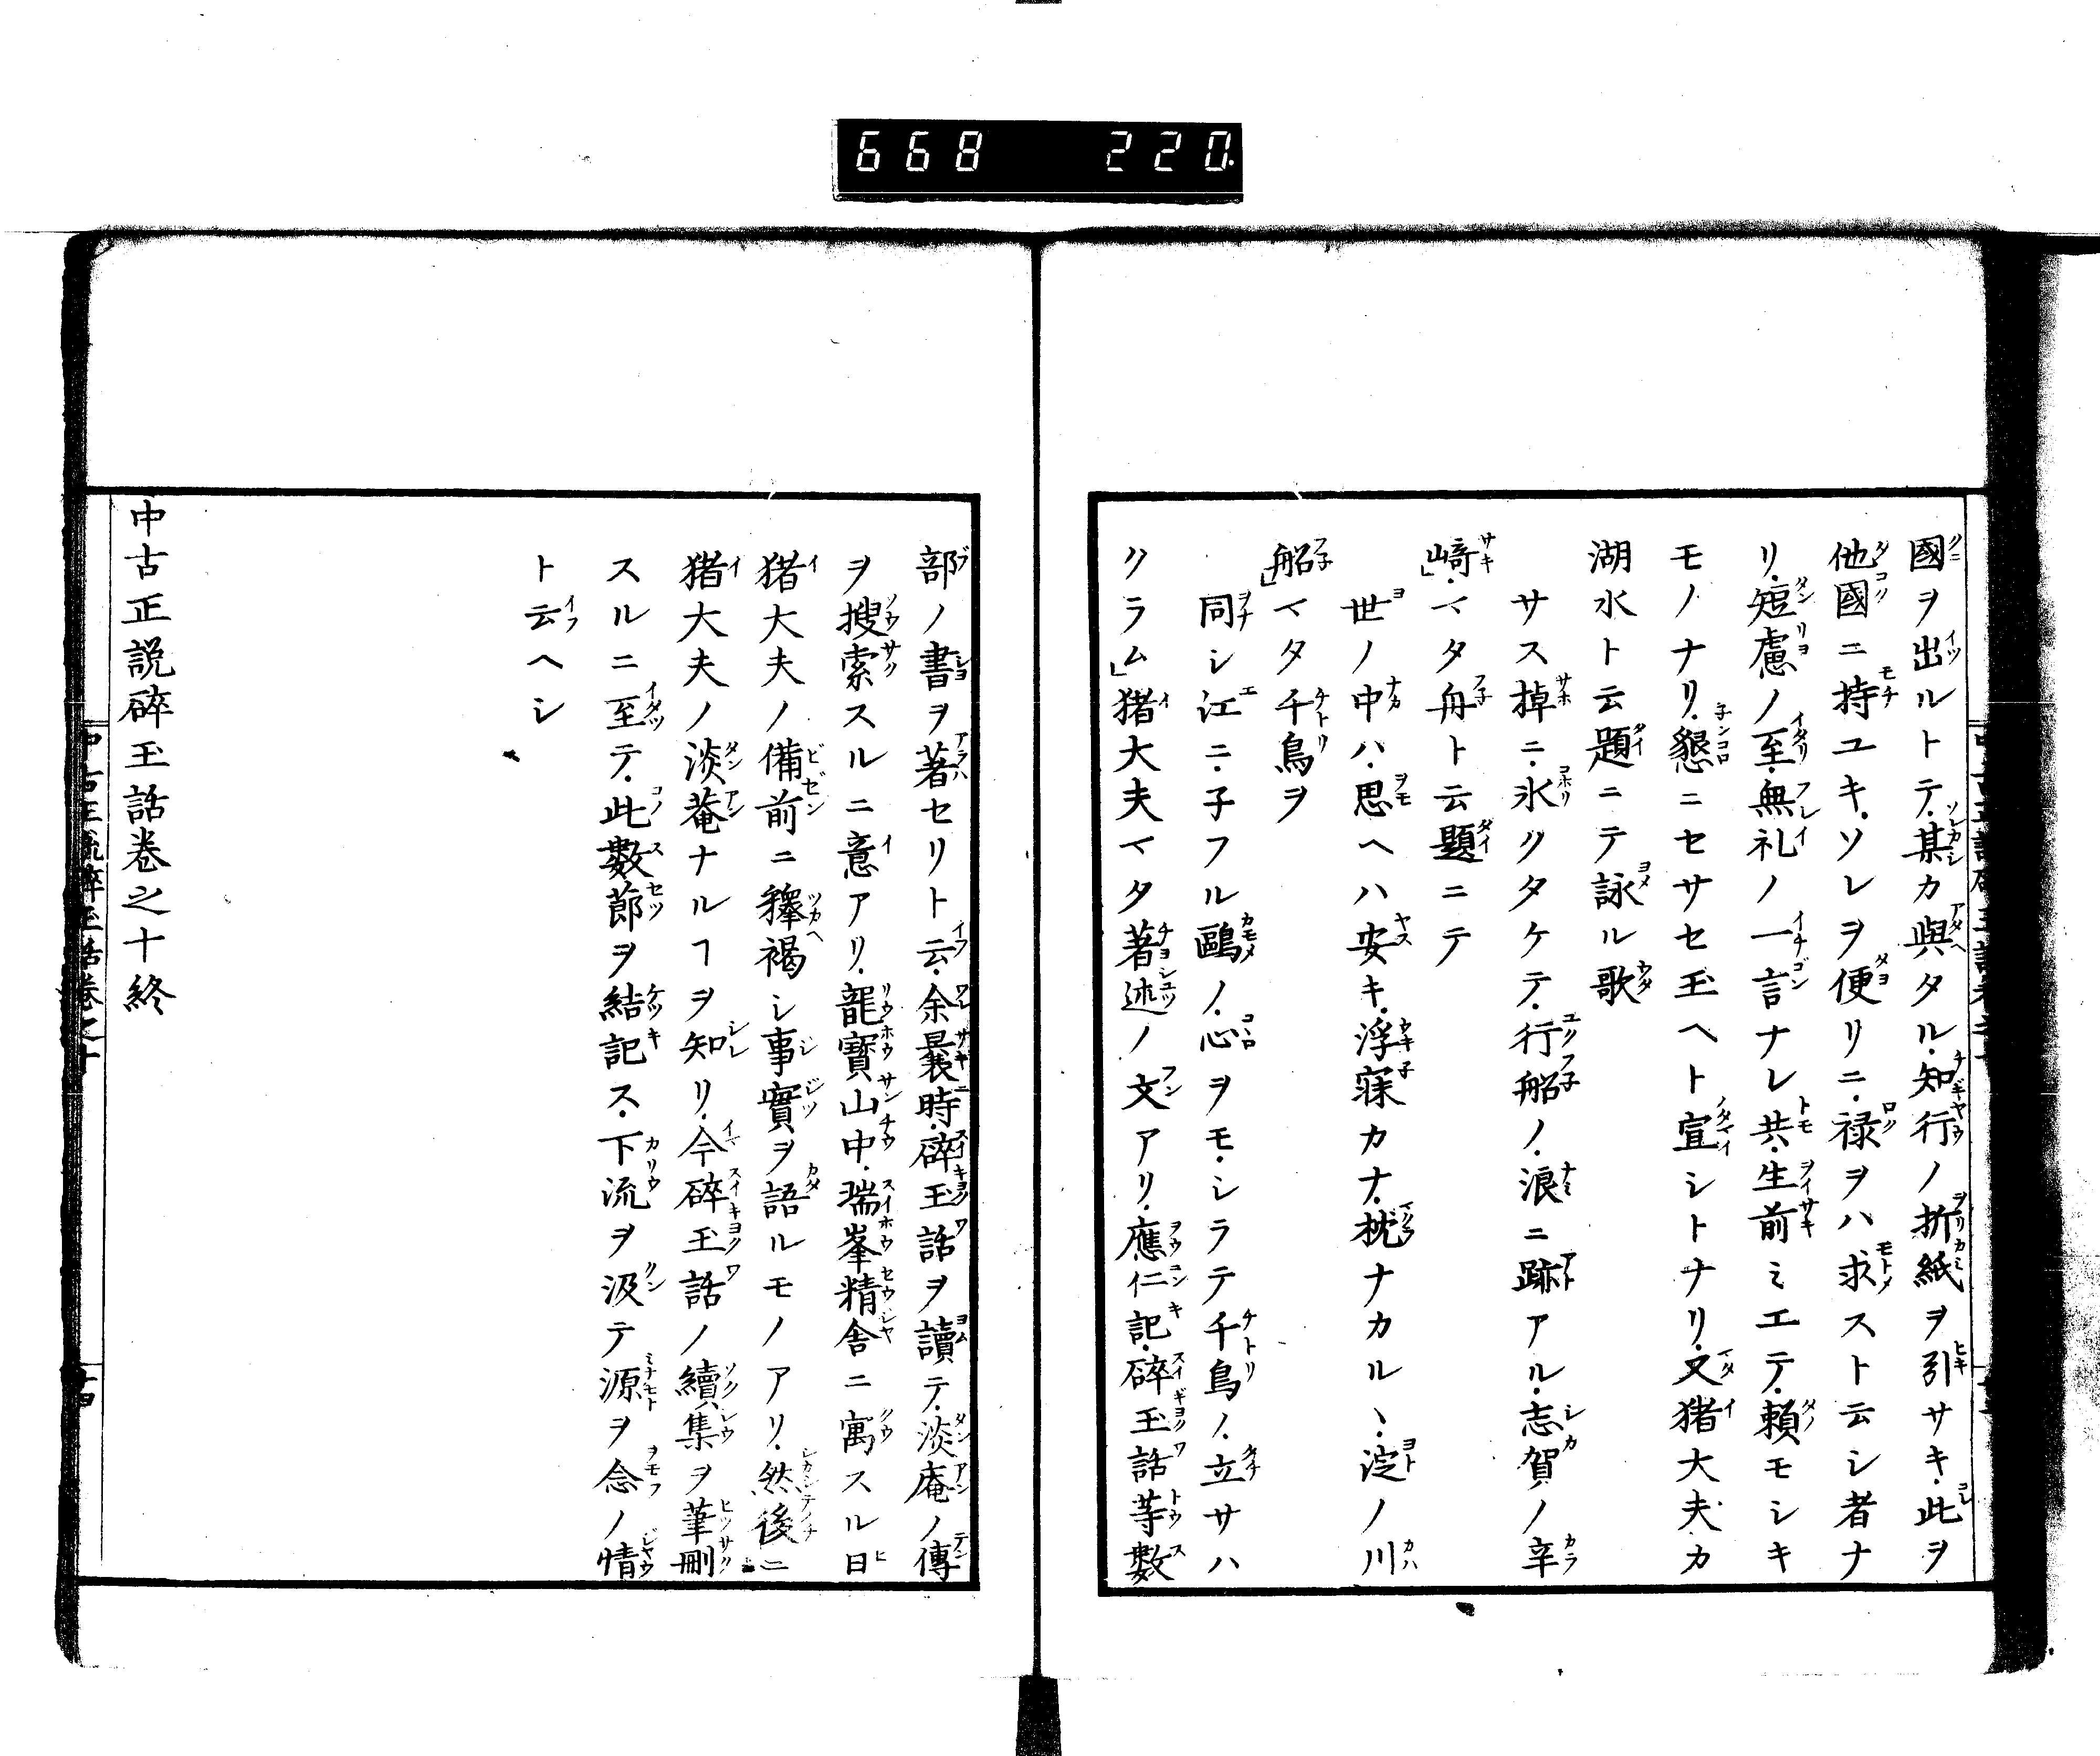 668 220
國ヲ出ルトテ某カ與タル知行ノ折紙ヲ引サキ此ヲ
他國ニ持ユキソレヲ便リニ禄ヲハ求スト云シ者ナ
リ短慮ノ至無礼ノ一言ナレ共生前ミエテ頼モシキ
モノナリ懇ニセサセ玉ヘト宣シトナリ又猪大夫カ
湖水ト云題ニテ詠ル歌
サス掉ニ氷クタケテ行船ノ浪ニ跡アル志賀ノ辛
﨑」マタ舟ト云題ニテ
世ノ中ハ思ヘハ安キ浮寐カナ枕ナカルヽ淀ノ川
船」マタ千鳥ヲ
同シ江ニ子フル鷗ノ心ヲモシラテ千鳥ノ立サハ
クラム」猪大夫マタ著述ノ文アリ應仁記碎玉話等數
部ノ書ヲ著セリト云余曩時碎玉話ヲ讀テ淡庵ノ傳
ヲ搜索スルニ意アリ龍寶山中瑞峯精舎ニ寓スル日
猪大夫ノ備前ニ釋褐シ事實ヲ語ルモノアリ然後ニ
猪大夫ノ淡菴ナルヿヲ知リ今碎玉話ノ續集ヲ筆刪
スルニ至テ此數節ヲ結記ス下流ヲ汲テ源ヲ念ノ情
ト云ヘシ
中古正説碎玉話卷之十終
中古正説碎玉話卷之十